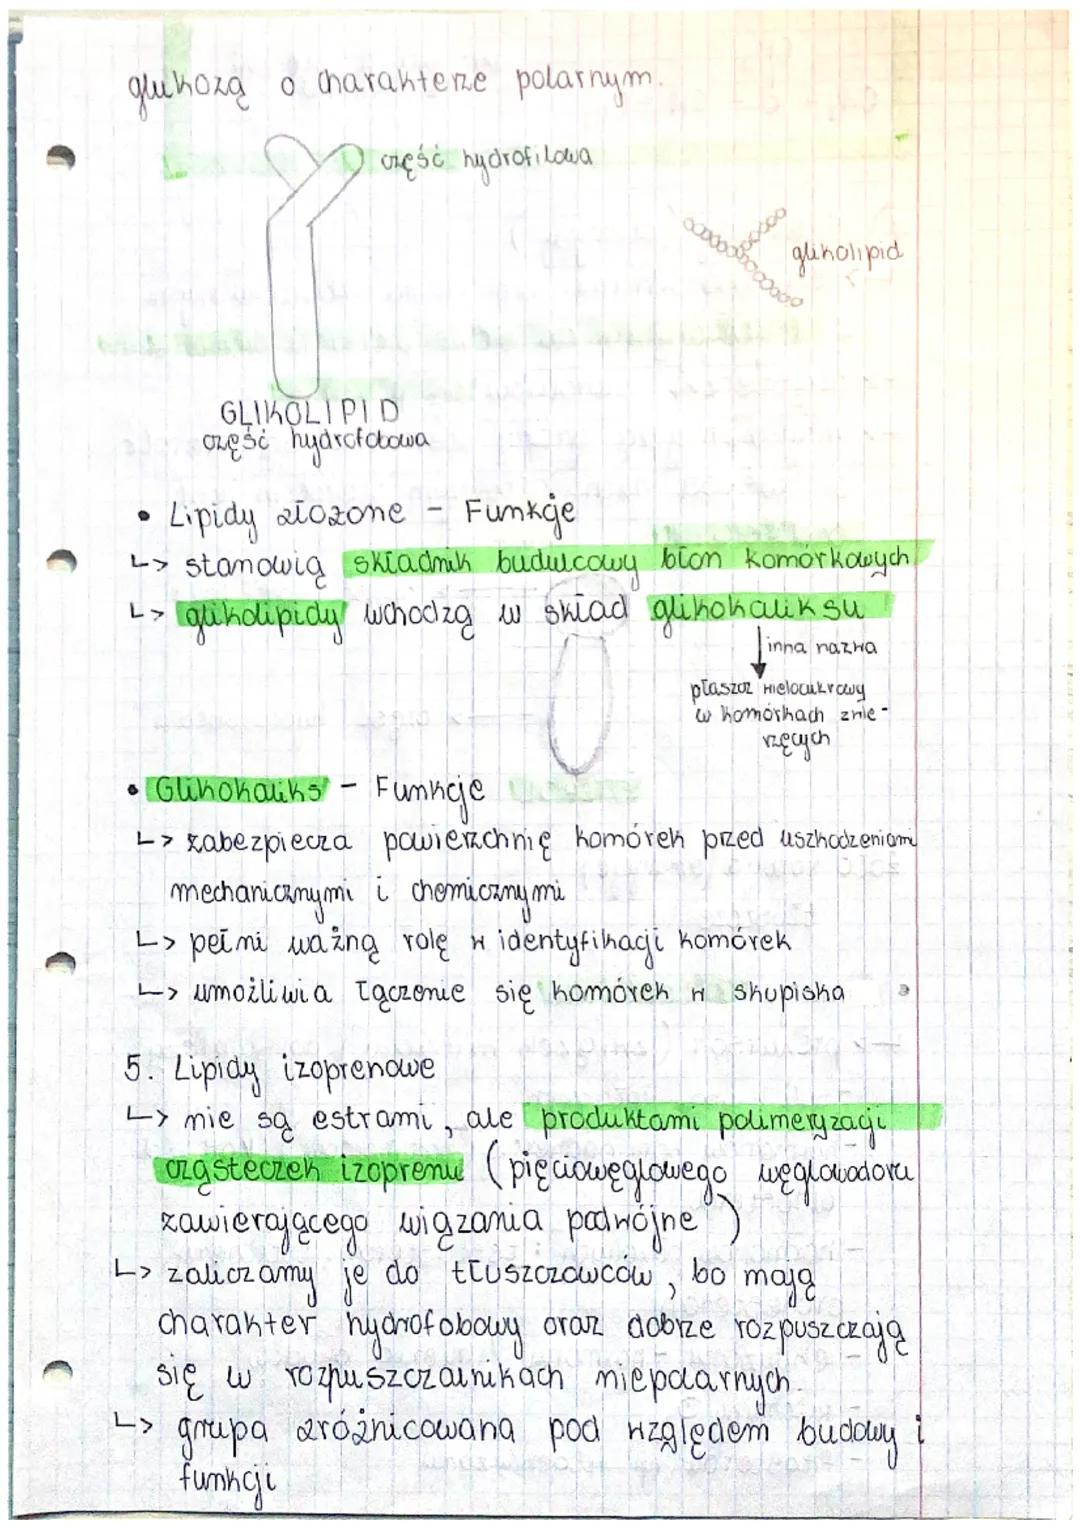 glukozą o charakterze polarnym.
część hydrofilowa
glikolipid
GLIKOLIPID
część hydrofobowa
• Lipidy złożone - Funkcje
↳ stanowią składnik budulcowy błon komórkowych
↳ glikolipidy wchodzą w skład glikokaliksu
inna nazwa
płaszcz wielocukrowy
w komórkach zwie-
rzęcych
• Glikokaliks - Funkcje
↳ zabezpiecza powierzchnię komórek przed uszkodzeniami
mechanicznymi i chemicznymi
↳ pełni ważną rolę w identyfikacji komórek
↳ umożliwia łączenie się komórek w skupiska
5. Lipidy izoprenowe
↳ nie są estrami, ale produktami polimeryzacji
cząsteczek izoprenu (pięciowęglowego węglowodoru
zawierającego wiązania podwójne)
↳ zaliczamy je do tłuszczowców, bo mają
charakter hydrofobowy oraz dobrze rozpuszczają
się w rozpuszczalnikach niepolarnych.
↳ grupa zróżnicowana pod względem budowy i
funkcji